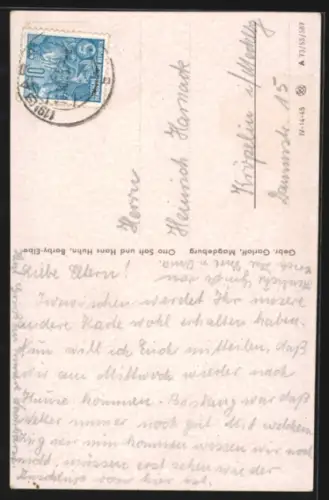 Liebe Eltern!
Inzwischen werdet Ihr unsere
andere Karte wohl erhalten haben.
Nun will ich Euch mitteilen, daß
wir am Mittwoch wieder nach
Hause kommen. Bislang war das
Wetter immer noch gut. Mit welchem
Zug wir nun kommen wissen wir noch
nicht, müssen erst sehen wie der
Anschluss von hier ist.
Herrn
Heinrich Harnack
Kröpelin i/Mecklbg
15
Gebr. Garloff, Magdeburg
Otto Soft und Hans Huhn, Barby-Elbe
IV-14-45
A 73/55/387
10